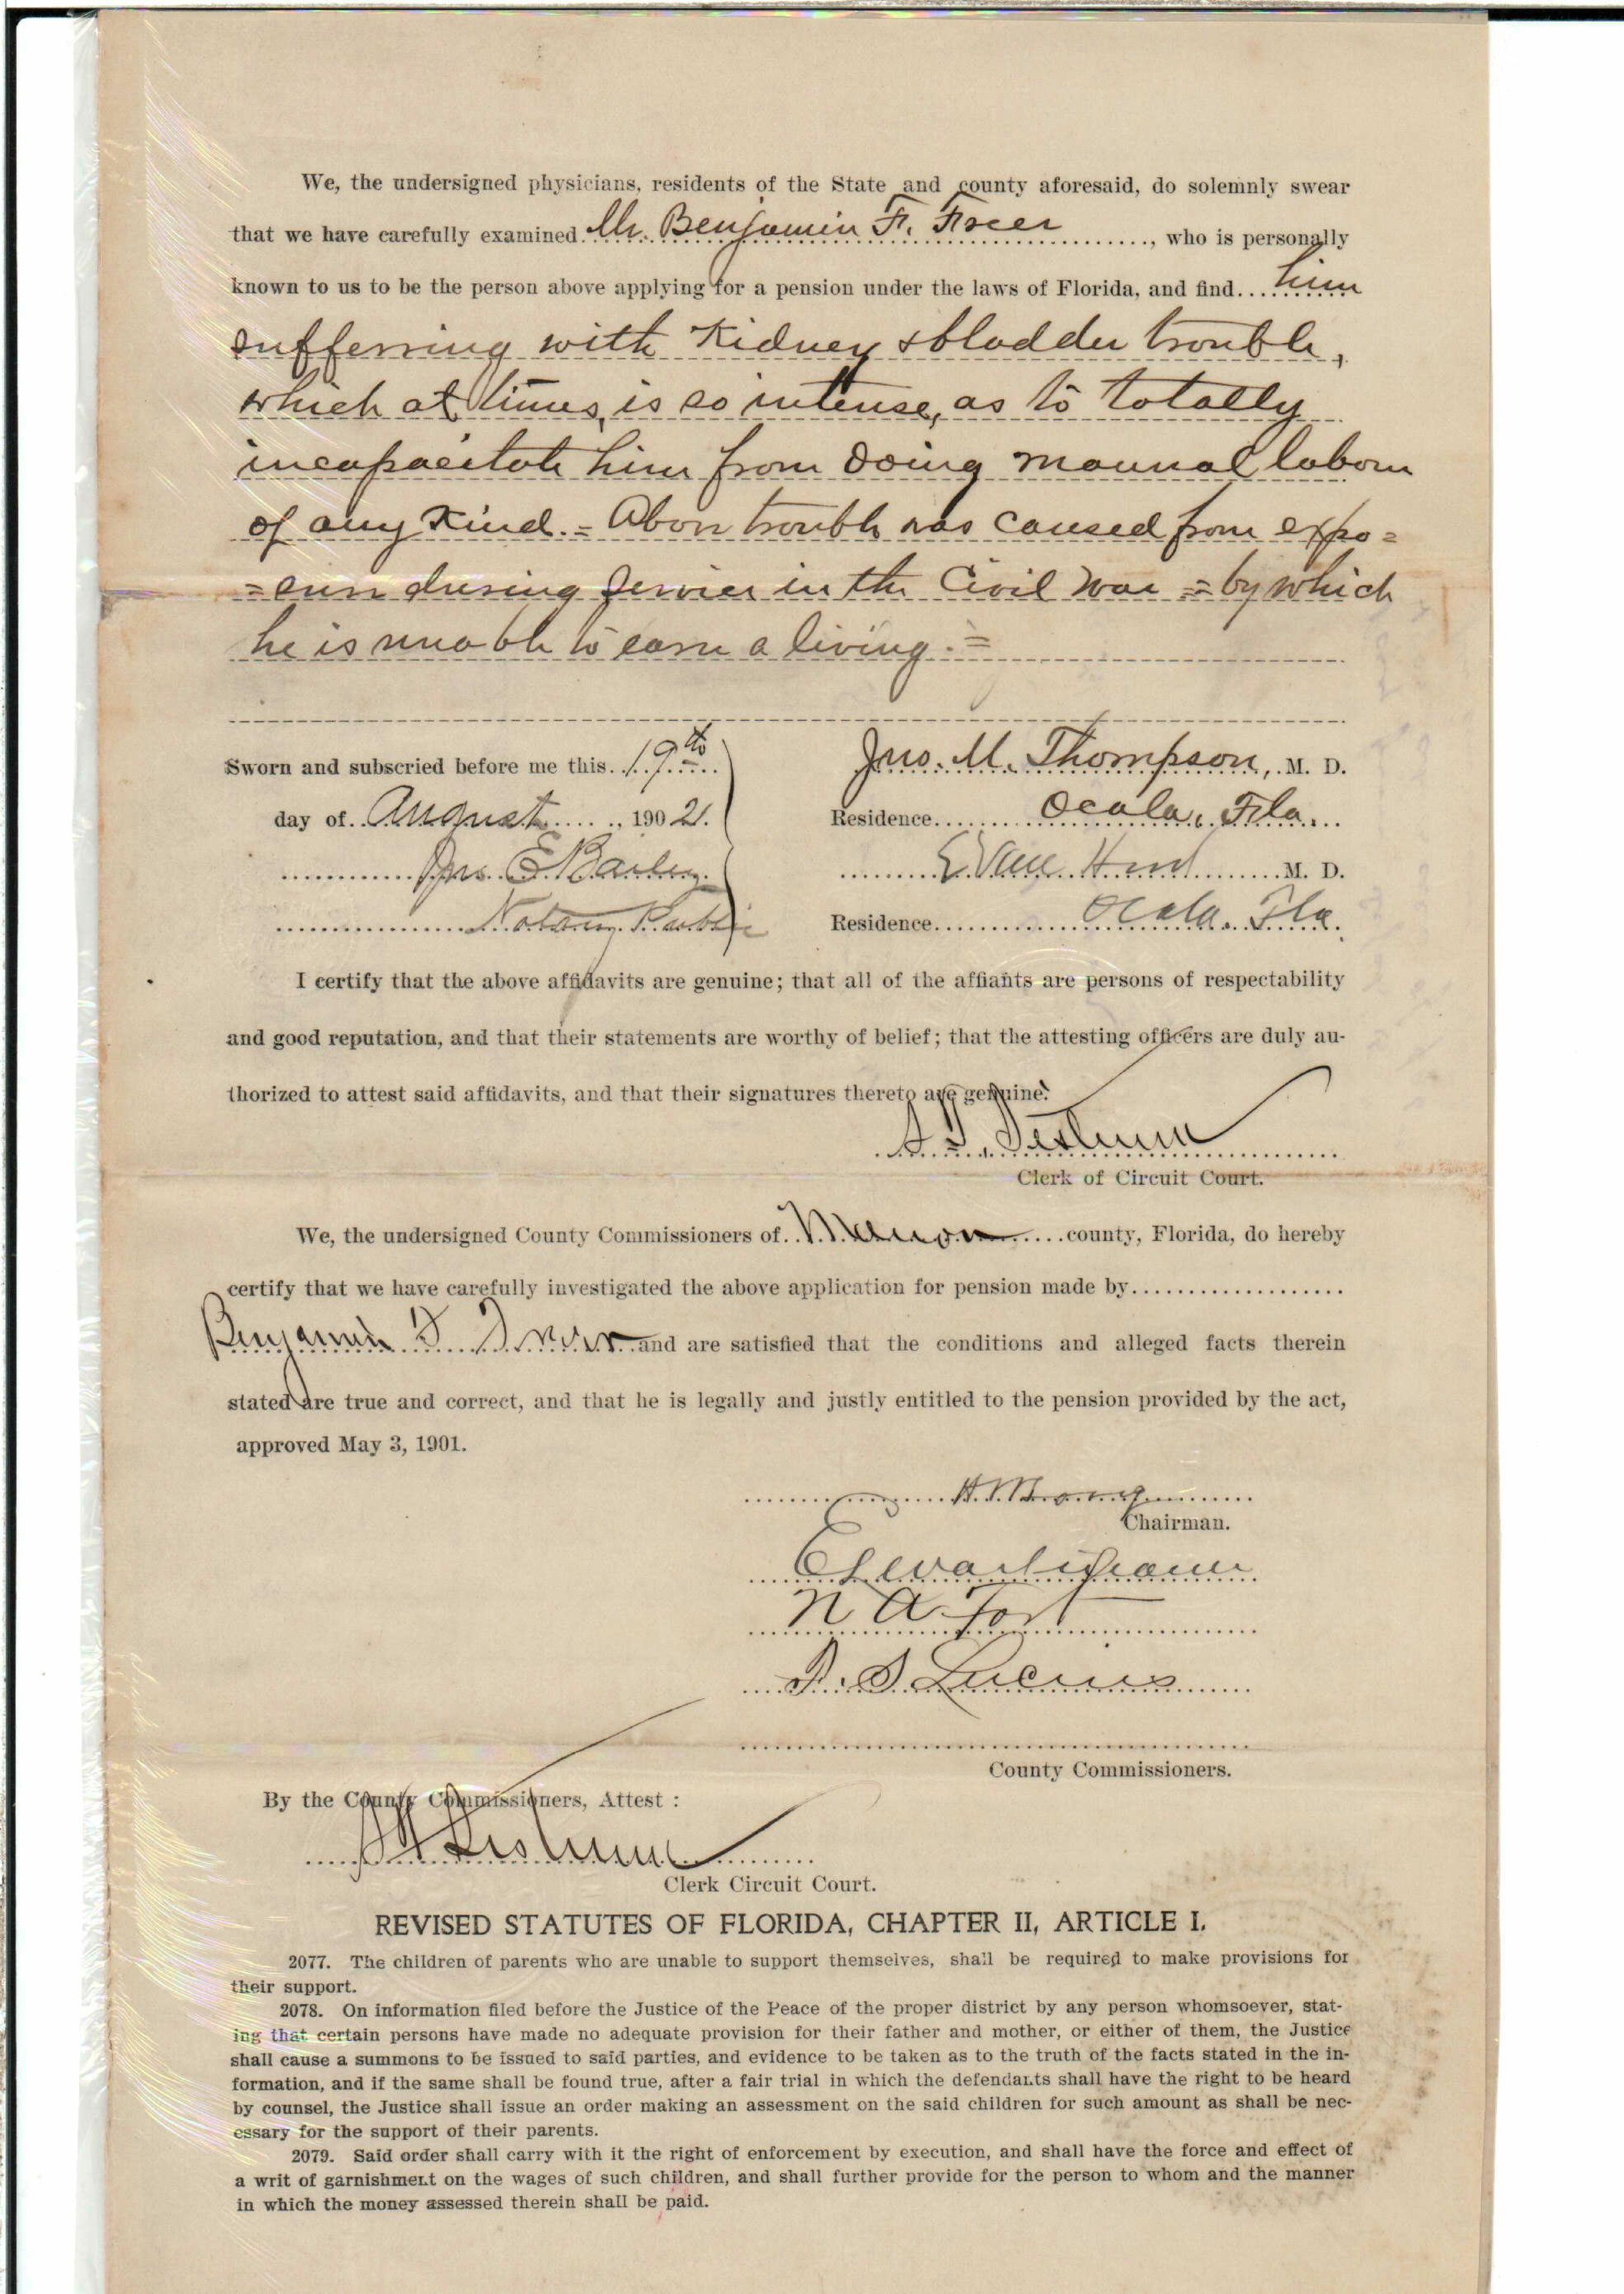 We, the undersigned physicians, residents of the State and county aforesaid, do solemnly swear
that we have carefully examined Mr. Benjamin F. Freer, who is personally
known to us to be the person above applying for a pension under the laws of Florida, and find him
suffering with Kidney & bladder trouble,
which at times, is so intense, as to totally
incapacitate him from doing manual labour
of any Kind. = Above trouble was caused from expo=
=sure during service in the Civil War = by which
he is unable to earn a living. =
Sworn and subscried before me this 19th
day of August, 1902.
Jno. M. Thompson, M. D.
Residence Ocala, Fla.
Jno. E. Bailey
Notary Public
E Van Hood M. D.
Residence Ocala. Fla.
I certify that the above affidavits are genuine; that all of the affiants are persons of respectability
and good reputation, and that their statements are worthy of belief; that the attesting officers are duly au-
thorized to attest said affidavits, and that their signatures thereto are genuine.
Clerk of Circuit Court.
We, the undersigned County Commissioners of Marion county, Florida, do hereby
certify that we have carefully investigated the above application for pension made by
Benjamin F. Freer and are satisfied that the conditions and alleged facts therein
stated are true and correct, and that he is legally and justly entitled to the pension provided by the act,
approved May 3, 1901.
Chairman.
N A Fort
County Commissioners.
By the County Commissioners, Attest :
Clerk Circuit Court.
REVISED STATUTES OF FLORIDA, CHAPTER II, ARTICLE I.
2077. The children of parents who are unable to support themselves, shall be required to make provisions for
their support.
2078. On information filed before the Justice of the Peace of the proper district by any person whomsoever, stat-
ing that certain persons have made no adequate provision for their father and mother, or either of them, the Justice
shall cause a summons to be issued to said parties, and evidence to be taken as to the truth of the facts stated in the in-
formation, and if the same shall be found true, after a fair trial in which the defendants shall have the right to be heard
by counsel, the Justice shall issue an order making an assessment on the said children for such amount as shall be nec-
essary for the support of their parents.
2079. Said order shall carry with it the right of enforcement by execution, and shall have the force and effect of
a writ of garnishment on the wages of such children, and shall further provide for the person to whom and the manner
in which the money assessed therein shall be paid.